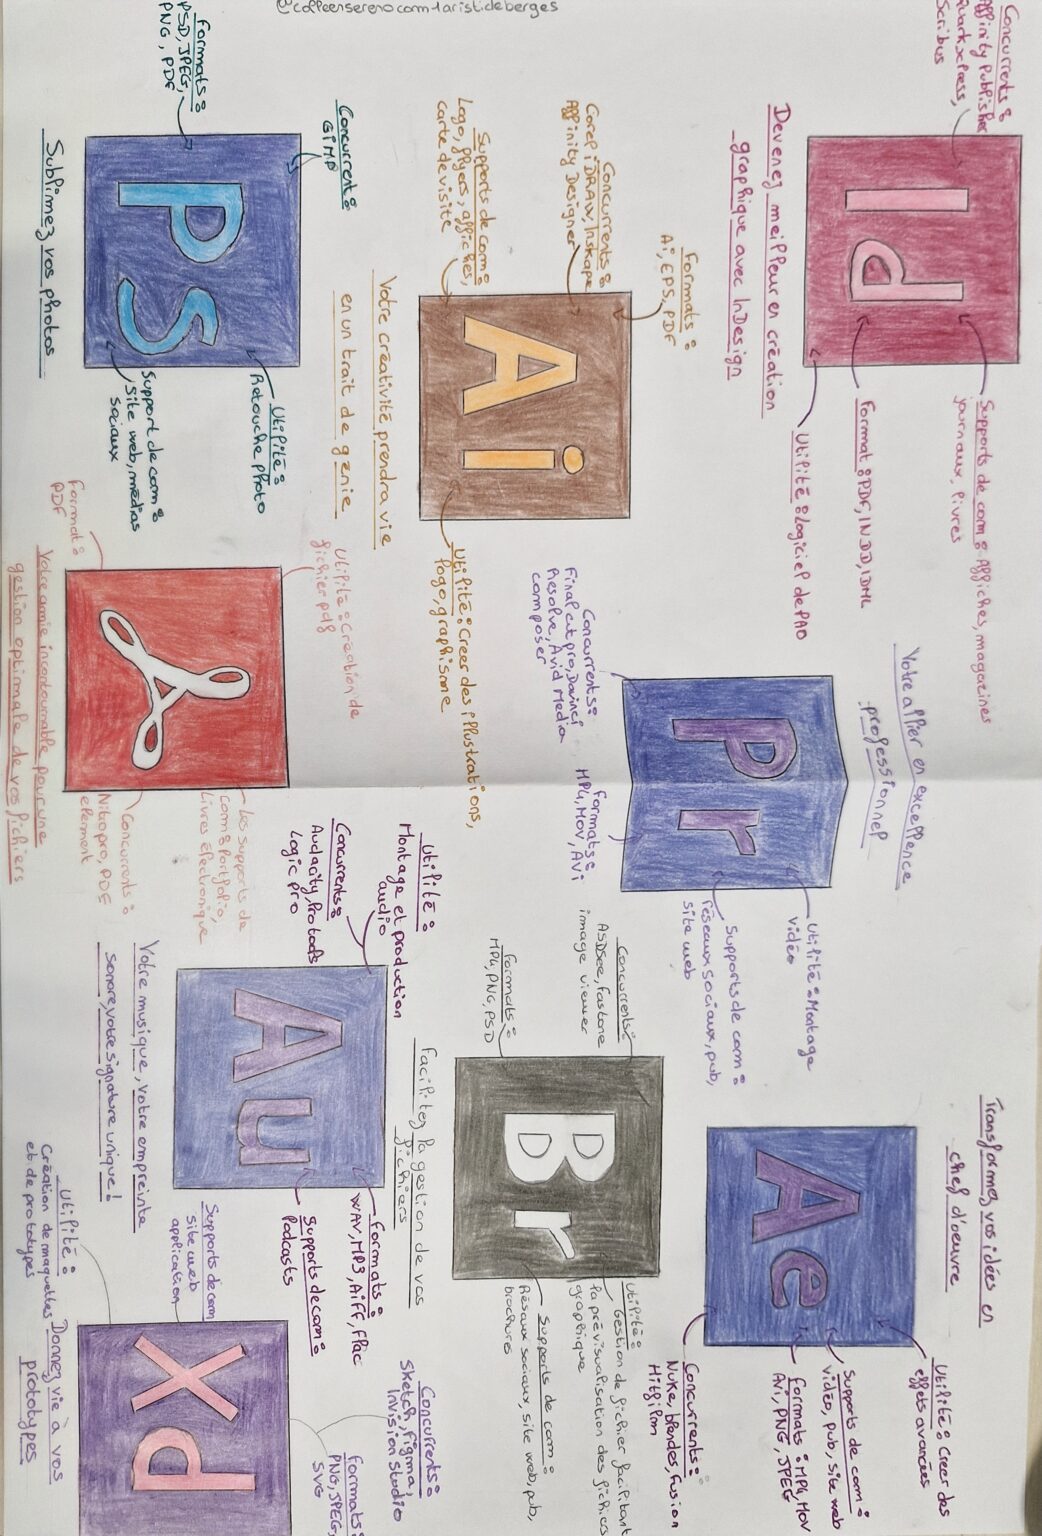 @coffeensereno.com-laristideberges
Concurrents :
Affinity Publisher
Quarkxpress,
Scribus
Id
Supports de com : Affiches, magazines
journaux, livres
Format : PDF, INDD, IDML
Utilité : logiciel de PAO
Devenez meilleur en création
graphique avec InDesign
Formats :
Ai, EPS, PDF
Concurrents :
CorelDRAW, Inskape
Affinity Designer
Supports de com :
Logo, flyers, affiches,
carte de visite
Ai
Utilité : Creer des illustrations,
logo, graphisme
Votre créativité prendra vie
en un trait de génie
Concurrent :
GIMP
Formats :
PSD, JPEG,
PNG, PDF
Ps
Utilité :
Retouche photo
Support de com :
site web, médias
sociaux
Sublimez vos photos
Votre allier en excellence
professionnel
Concurrents :
Final cut pro, Davinci
Resolve, Avid Media
composer
Formats :
MP4, MOV, AVI
Pr
Utilité : Montage
vidéo
Supports de com :
réseaux sociaux, pub,
site web
Utilité : Création de
fichier pdf
Format :
PDF
Les supports de
com : Portfolio,
Livres électronique
Concurrents :
Nitro pro, PDF
element
Votre amie incontournable pour une
gestion optimale de vos fichiers
Transformez vos idées en
chef d'oeuvre
Ae
Utilité : Creer des
effets avancées
Supports de com :
vidéo, pub, site web
Formats : MP4, MOV
Avi, PNG, JPEG
Concurrents :
Nuke, blendes, Fusion
Hitfilm
Concurrents :
ASDSee, Fastone
image viewer
Formats :
MP4, PNG, PSD
Br
Utilité :
Gestion de fichier facilitant
la prévisualisation des fichiers
graphique
Supports de com :
Réseaux sociaux, site web, pub,
brochures
Facilitez la gestion de vos
fichiers
Utilité :
Montage et production
audio
Concurrents :
Audacity, Protools
Logic pro
Au
Formats :
WAV, MP3, AIFF, Flac
Supports de com :
Podcasts
Votre musique, votre empreinte
sonore, votre signature unique !
Supports de com
site web
application
Utilité :
Création de maquettes
et de prototypes
Xd
Concurrents :
Sketch, Figma,
Invision studio
Formats :
PNG, JPEG,
SVG
Donnez vie à vos
prototypes